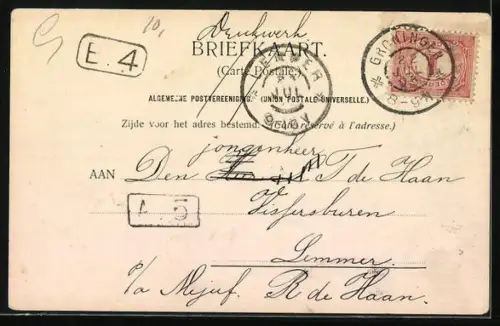 10,
Drukwerk
E.4
BRIEFKAART.
(Carte Postale.)
LEMMER
JUL
GRONINGEN
8-9V
ALGEMEENE POSTVEREENIGING. (UNION POSTALE UNIVERSELLE.)
Zijde voor het adres bestemd. (Côté réservé à l'adresse.)
jongenheer
AAN Den T de Haan
Vissersburen
Lemmer.
p/a Mejuf. R de Haan.